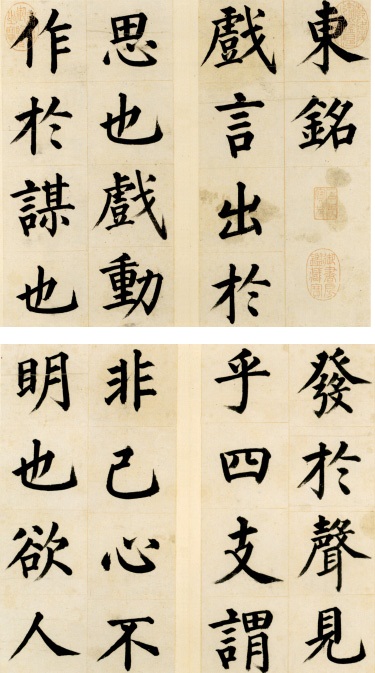 東銘
戲言出於
思也戲動
作於謀也
發於聲見
乎四支謂
非己心不
明也欲人